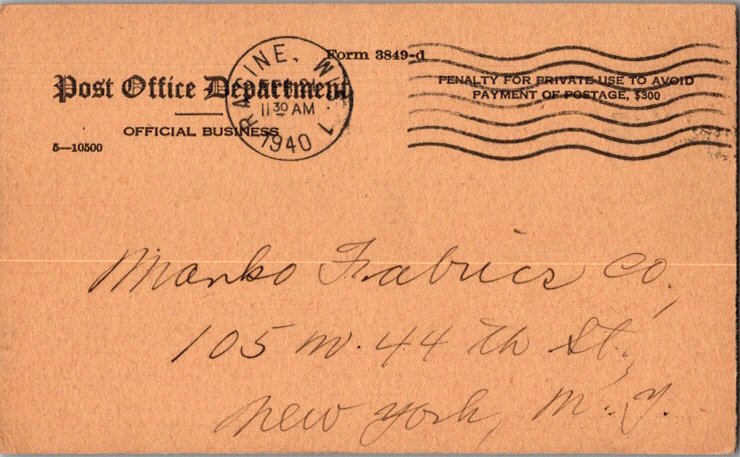 Form 3849-d
Post Office Department
OFFICIAL BUSINESS
5—10500
RACINE, WIS. 1
FEB 21
11 30 AM
1940
PENALTY FOR PRIVATE USE TO AVOID
PAYMENT OF POSTAGE, $300
Manko Fabrics Co,
105 W. 44 th St,
New York, N.Y.